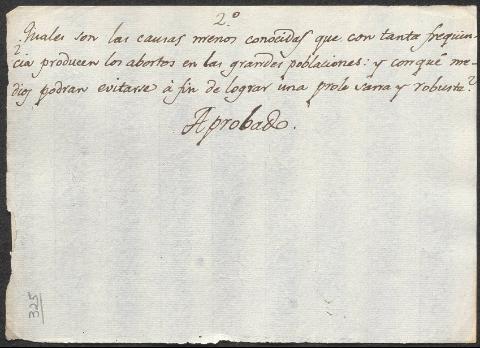 2.º
¿Quales son las causas menos conocidas que con tanta freqüen-
cia producen los abortos en las grandes poblaciones: y con qué me-
dios podran evitarse á fin de lograr una prole sana y robusta?
Aprobado.
325